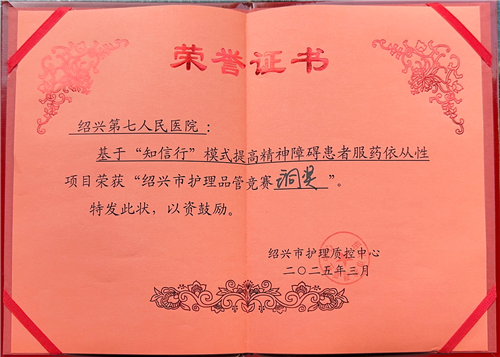 荣誉证书
绍兴第七人民医院：
基于“知信行”模式提高精神障碍患者服药依从性
项目荣获“绍兴市护理品管竞赛铜奖”。
特发此状，以资鼓励。
绍兴市护理质控中心
二〇二五年三月